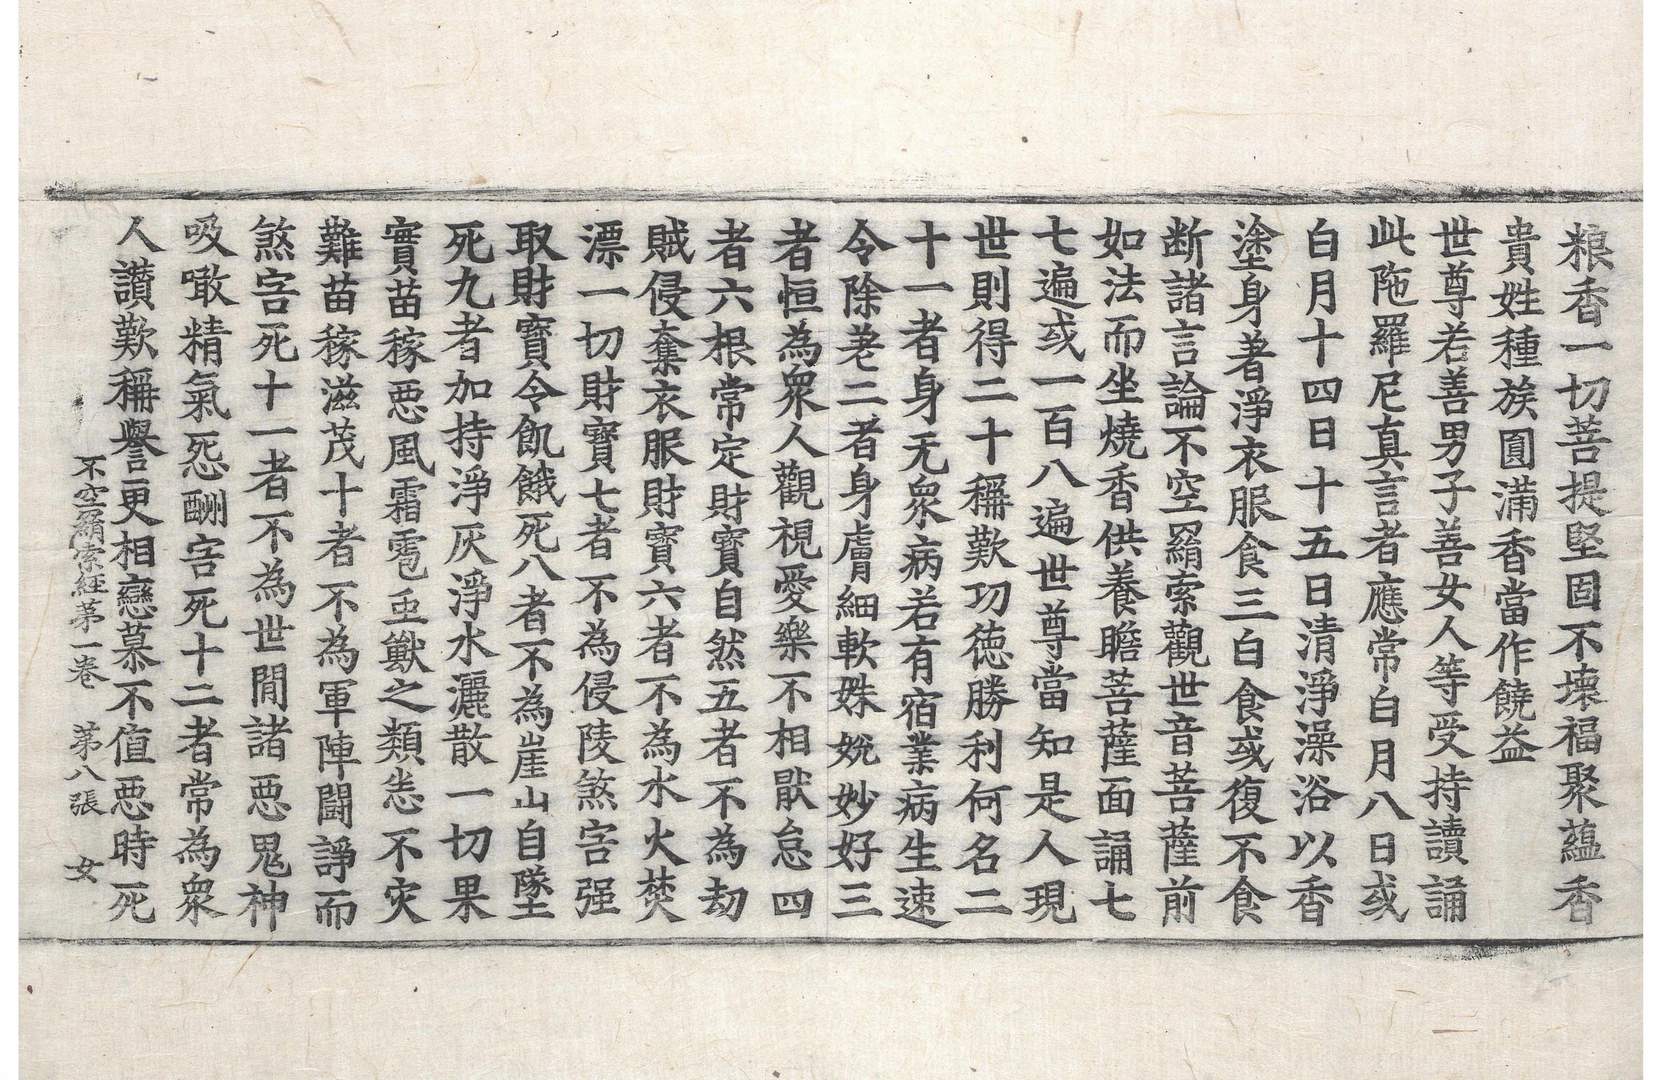 粮香一切菩提堅固不壞福聚蘊香
貴姓種族圓滿香當作饒益
世尊若善男子善女人等受持讀誦
此陁羅尼真言者應常白月八日或
白月十四日十五日清淨澡浴以香
塗身著淨衣服食三白食或復不食
断諸言論不空羂索觀世音菩薩前
如法而坐燒香供養瞻菩薩面誦七
七遍或一百八遍世尊當知是人現
世則得二十稱歎功徳勝利何名二
十一者身无衆病若有宿業病生速
令除差二者身膚細軟姝恱妙好三
者恒為衆人觀視愛樂不相猒怠四
者六根常定財寶自然五者不為劫
賊侵奪衣服財寶六者不為水火焚
漂一切財寶七者不為侵陵煞害强
取財寶令飢餓死八者不為崖山自墜
死九者加持淨灰淨水灑散一切果
實苗稼惡風霜雹虫獸之類恙不灾
難苗稼滋茂十者不為軍陣鬪諍而
煞害死十一者不為世間諸惡鬼神
吸噉精氣怨酬害死十二者常為衆
人讃歎稱譽更相戀慕不值惡時死
不空羂索経苐一巻　苐八張　女